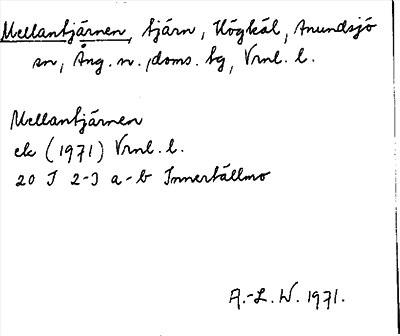 Mellantjärnen, tjärn, Högkål, Anundsjö
sn, Ång. n., doms. tg, Vrnl. l.
Mellantjärnen
ek (1971) Vrnl. l.
20 J 2-3 a-b Innertällmo
A.-L. W. 1971.